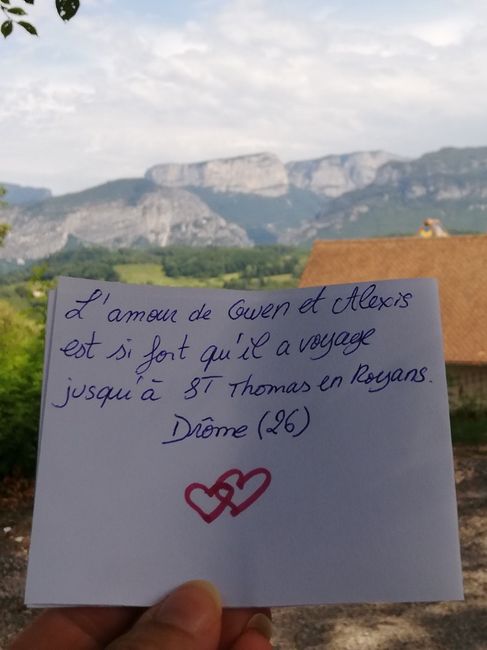 L'amour de Gwen et Alexis
est si fort qu'il a voyage
jusqu'à ST Thomas en Royans.
Drôme (26)